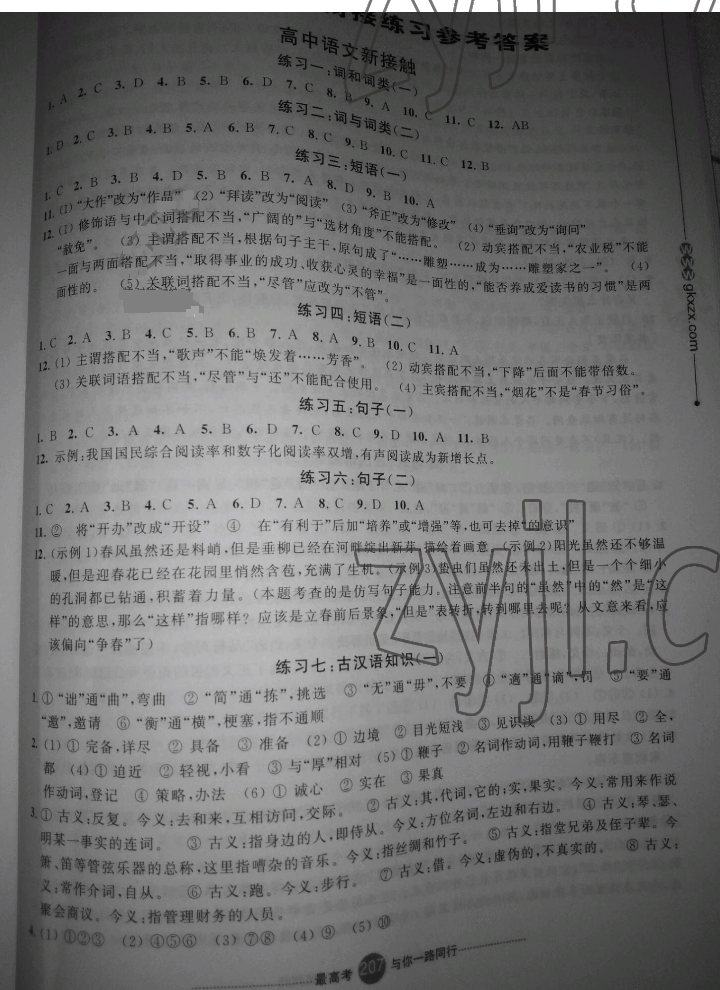 接练习参考答案
高中语文新接触
练习一:词和词类(一)
1. A 2. C 3. D 4. B 5. B 6. D 7. C 8. B 9. A 10. C 11. C 12. AB
练习二:词与词类(二)
1. D 2. C 3. B 4. B 5. A 6. B 7. C 8. C 9. B 10. C 11. C 12. B
练习三:短语(一)
1. C 2. B 3. B 4. C 5. B 6. B 7. A 8. D 9. B 10. A
11. (1)“大作”改为“作品” (2)“拜读”改为“阅读” (3)“斧正”改为“修改” (4)“垂询”改为“询问”
12. (1) 修饰语与中心词搭配不当,“广阔的”与“选材角度”不能搭配。 (2) 动宾搭配不当,“农业税”不能
“赦免”。 (3) 主谓搭配不当,根据句子主干,原句成了“……雕塑……成为……雕塑家之一”。 (4)
一面与两面搭配不当,“取得事业的成功、收获心灵的幸福”是一面性的,“能否养成爱读书的习惯”是两
面性的。 (5) 关联词搭配不当,“尽管”应改为“不管”。
练习四:短语(二)
1. C 2. A 3. B 4. C 5. B 6. B 7. A 8. A 9. B 10. C 11. A
12. (1) 主谓搭配不当,“歌声”不能“焕发着……芳香”。 (2) 动宾搭配不当,“下降”后面不能带倍数。
(3) 关联词语搭配不当,“尽管”与“还”不能配合使用。 (4) 主宾搭配不当,“烟花”不是“春节习俗”。
练习五:句子(一)
1. B 2. C 3. A 4. A 5. B 6. D 7. C 8. C 9. D 10. A 11. B
12. 示例:我国国民综合阅读率和数字化阅读率双增,有声阅读成为新增长点。
练习六:句子(二)
1. C 2. A 3. B 4. C 5. A 6. D 7. A 8. C 9. D 10. A
11. ② 将“开办”改成“开设” ④ 在“有利于”后加“培养”或“增强”等,也可去掉“的意识”
12. (示例1)春风虽然还是料峭,但是垂柳已经在河畔绽出新芽,描绘着画意。(示例2)阳光虽然还不够温
暖,但是迎春花已经在花园里悄然含苞,充满了生机。(示例3)蛰虫们虽然还未出土,但是一个个细小
的孔洞都已钻通,积蓄着力量。(本题考查的是仿写句子能力。注意前半句的“虽然”中的“然”是“这
样”的意思,那么“这样”指哪样? 应该是立春前后景象,“但是”表转折,转到哪里去呢? 从文意来看,应
该偏向“争春”了)
练习七:古汉语知识(一)
1. ①“诎”通“曲”,弯曲 ②“简”通“拣”,挑选 ③“无”通“毋”,不要 ④“適”通“谪”,罚 ⑤“要”通
“邀”,邀请 ⑥“衡”通“横”,梗塞,指不通顺
2. (1) ① 完备,详尽 ② 具备 ③ 准备 (2) ① 边境 ② 目光短浅 ③ 见识浅 (3) ① 用尽 ② 全,
都 (4) ① 迫近 ② 轻视,小看 ③ 与“厚”相对 (5) ① 鞭子 ② 名词作动词,用鞭子鞭打 ③ 名词
作动词,登记 ④ 策略,办法 (6) ① 诚心 ② 实在 ③ 果真
3. ① 古义:反复。今义:去和来,互相访问,交际。 ② 古义:其,代词,它的;实,果实。今义:常用来作说
明某一事实的连词。 ③ 古义:指身边的人,即侍从。今义:方位名词,左边和右边。 ④ 古义:琴、瑟、
箫、笛等管弦乐器的总称,这里指嘈杂的音乐。今义:指丝绸和竹子。 ⑤ 古义:指堂兄弟及侄子辈。今
义:常作介词,自从。 ⑥ 古义:跑。今义:步行。 ⑦ 古义:借。今义:虚伪的,不真实的。 ⑧ 古义:
聚会商议。今义:指管理财务的人员。
4. (1) ①②③ (2) ④⑤⑥ (3) ⑦⑧ (4) ⑨ (5) ⑩
最高考 207 与你一路同行
gkxzx.com
zyjl.c